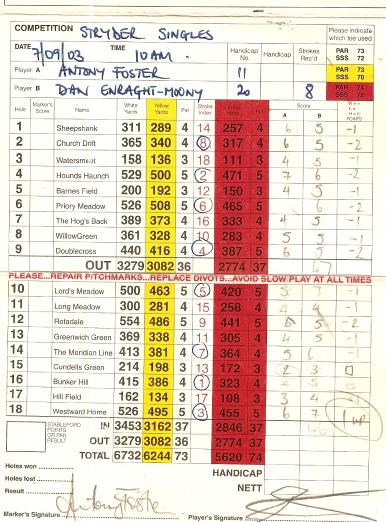 COMPETITION STRYDER SINGLES Please indicate which tee used
DATE 7/09/03 TIME 10AM. Handicap No. Handicap Strokes Rec'd PAR 73 SSS 72
Player A ANTONY FOSTER 11 PAR 73 SSS 70
Player B DAN ENRAGHT-MOONY 20 8 PAR 74 SSS 72
Hole Marker's Score Name White Yards Yellow Yards Par Stroke Index Par Score
1 Sheepshank 311 289 4 14 257 4 6 5 -1
2 Church Drift 365 340 4 8 317 4 6 5 -2
3 Watersmeet 158 136 3 18 111 3 4 3 -1
4 Hounds Haunch 529 500 5 2 471 5 7 6 -2
5 Barnes Field 200 192 3 12 150 3 4 5 -1
6 Priory Meadow 526 508 5 6 465 5 6 -2
7 The Hog's Back 389 373 4 16 333 4 4 5 -1
8 WillowGreen 361 328 4 10 283 4 5 5 -1
9 Doublecross 440 416 4 4 387 5 6 5 -2
OUT 3279 3082 36 2774 37
PLEASE...REPAIR PITCHMARKS...REPLACE DIVOTS...AVOID SLOW PLAY AT ALL TIMES
10 Lord's Meadow 500 463 5 5 420 5 7 -1
11 Long Meadow 300 281 4 15 258 4 4 4 -1
12 Rotadale 554 486 5 9 441 5 5 -2
13 Greenwich Green 369 338 4 11 305 4 4 5 -1
14 The Meridian Line 413 381 4 7 364 4 5 6 -1
15 Cundells Green 214 198 3 13 172 3 2 3 0
16 Bunker Hill 415 386 4 1 323 4 5 0
17 Hill Field 162 134 3 17 108 3 3 4
18 Westward Home 526 495 5 3 455 5 6 7 1 up
STABLEFORD POINTS OR PAR RESULT IN 3453 3162 37 2846 37
OUT 3279 3082 36 2774 37
TOTAL 6732 6244 73 5620 74
Holes won HANDICAP
Holes lost NETT
Result
Marker's Signature Antony Foster Player's Signature